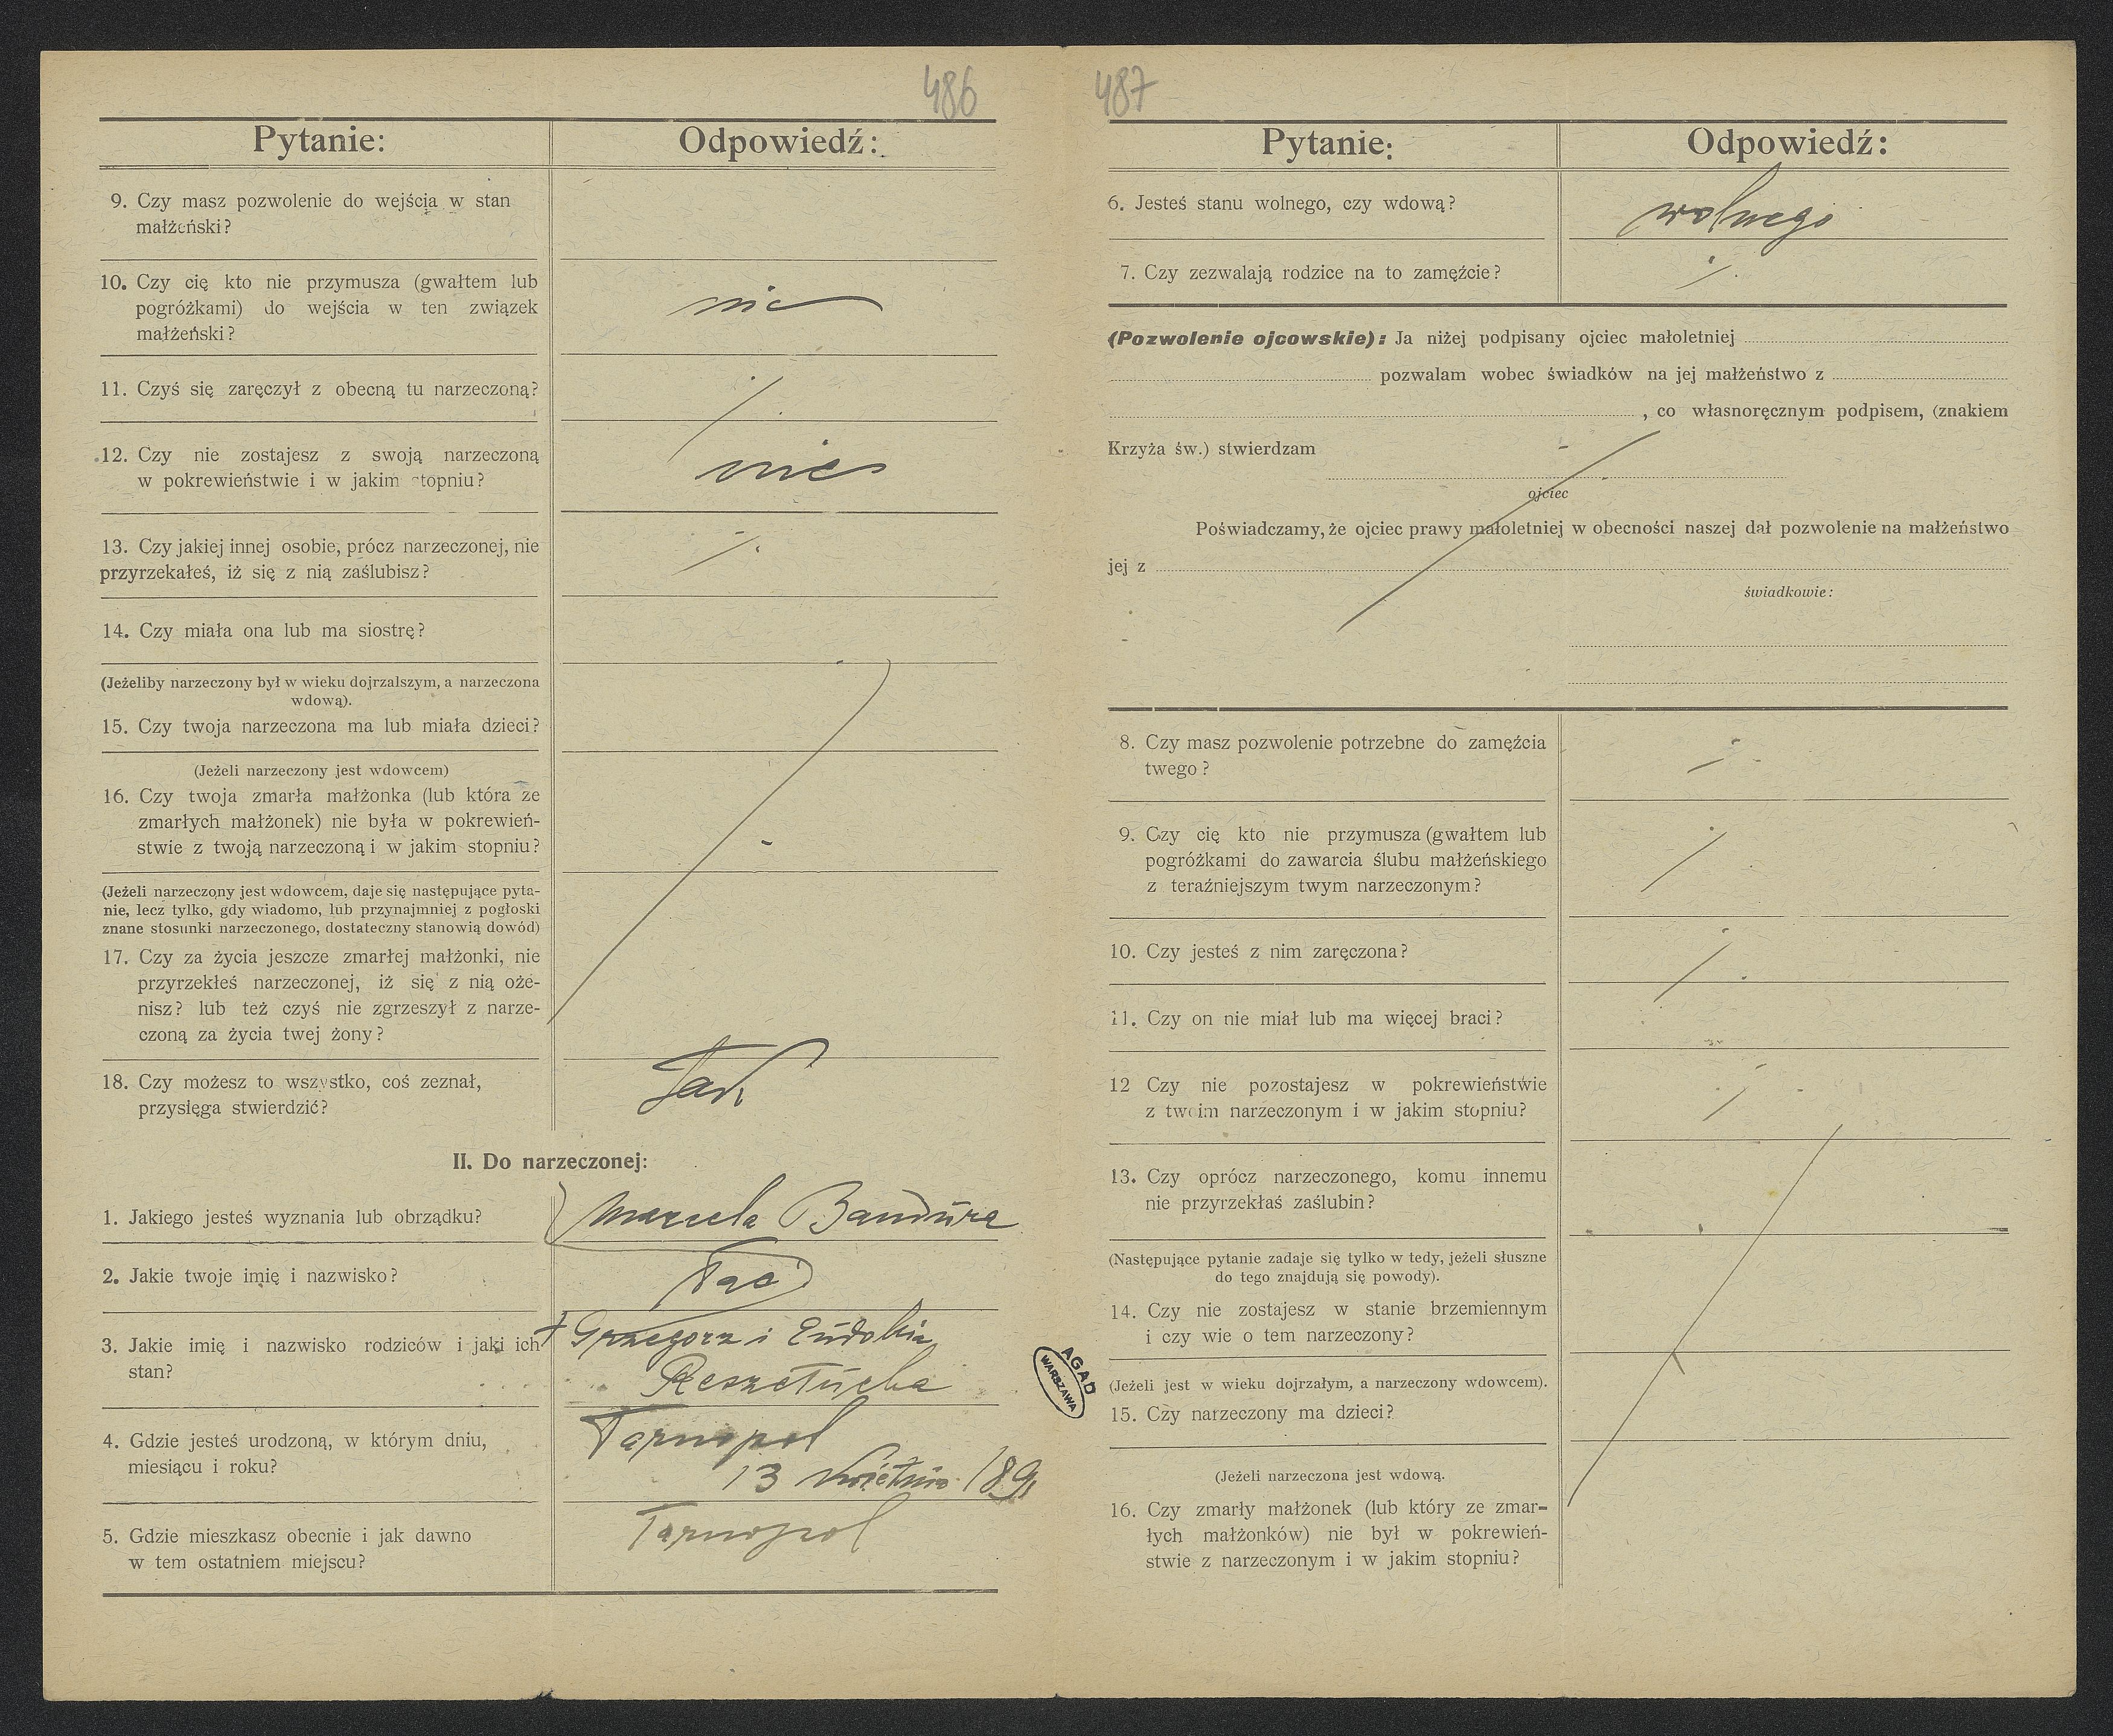 486
Pytanie:
Odpowiedź:
9. Czy masz pozwolenie do wejścia w stan
małżeński?
10. Czy cię kto nie przymusza (gwałtem lub
pogróżkami) do wejścia w ten związek
małżeński?
nie
11. Czyś się zaręczył z obecną tu narzeczoną?
12. Czy nie zostajesz z swoją narzeczoną
w pokrewieństwie i w jakim stopniu?
nie
13. Czy jakiej innej osobie, prócz narzeczonej, nie
przyrzekałeś, iż się z nią zaślubisz?
14. Czy miała ona lub ma siostrę?
(Jeżeliby narzeczony był w wieku dojrzalszym, a narzeczona
wdową).
15. Czy twoja narzeczona ma lub miała dzieci?
(Jeżeli narzeczony jest wdowcem)
16. Czy twoja zmarła małżonka (lub która ze
zmarłych małżonek) nie była w pokrewień-
stwie z twoją narzeczoną i w jakim stopniu?
(Jeżeli narzeczony jest wdowcem, daje się następujące pyta-
nie, lecz tylko, gdy wiadomo, lub przynajmniej z pogłoski
znane stosunki narzeczonego, dostateczny stanowią dowód)
17. Czy za życia jeszcze zmarłej małżonki, nie
przyrzekłeś narzeczonej, iż się z nią oże-
nisz? lub też czyś nie zgrzeszył z narze-
czoną za życia twej żony?
18. Czy możesz to wszystko, coś zeznał,
przysięga stwierdzić?
Tak
II. Do narzeczonej:
1. Jakiego jesteś wyznania lub obrządku?
Marcela Bandura
2. Jakie twoje imię i nazwisko?
3. Jakie imię i nazwisko rodziców i jaki ich
stan?
Grzegorz i Eudokia
Reszetucha
4. Gdzie jesteś urodzoną, w którym dniu,
miesiącu i roku?
Tarnopol
13 kwietnia 1891
5. Gdzie mieszkasz obecnie i jak dawno
w tem ostatniem miejscu?
Tarnopol
AGAD
WARSZAWA
487
Pytanie:
Odpowiedź:
6. Jesteś stanu wolnego, czy wdową?
wolnego
7. Czy zezwalają rodzice na to zamęźcie?
(Pozwolenie ojcowskie): Ja niżej podpisany ojciec małoletniej
pozwalam wobec świadków na jej małżeństwo z
, co własnoręcznym podpisem, (znakiem
Krzyża św.) stwierdzam
ojciec
Poświadczamy, że ojciec prawy małoletniej w obecności naszej dał pozwolenie na małżeństwo
jej z
świadkowie:
8. Czy masz pozwolenie potrzebne do zamęźcia
twego?
9. Czy cię kto nie przymusza (gwałtem lub
pogróżkami do zawarcia ślubu małżeńskiego
z teraźniejszym twym narzeczonym?
10. Czy jesteś z nim zaręczona?
11. Czy on nie miał lub ma więcej braci?
12 Czy nie pozostajesz w pokrewieństwie
z twoim narzeczonym i w jakim stopniu?
13. Czy oprócz narzeczonego, komu innemu
nie przyrzekłaś zaślubin?
(Następujące pytanie zadaje się tylko w tedy, jeżeli słuszne
do tego znajdują się powody).
14. Czy nie zostajesz w stanie brzemiennym
i czy wie o tem narzeczony?
(Jeżeli jest w wieku dojrzałym, a narzeczony wdowcem).
15. Czy narzeczony ma dzieci?
(Jeżeli narzeczona jest wdową.
16. Czy zmarły małżonek (lub który ze zmar-
łych małżonków) nie był w pokrewień-
stwie z narzeczonym i w jakim stopniu?